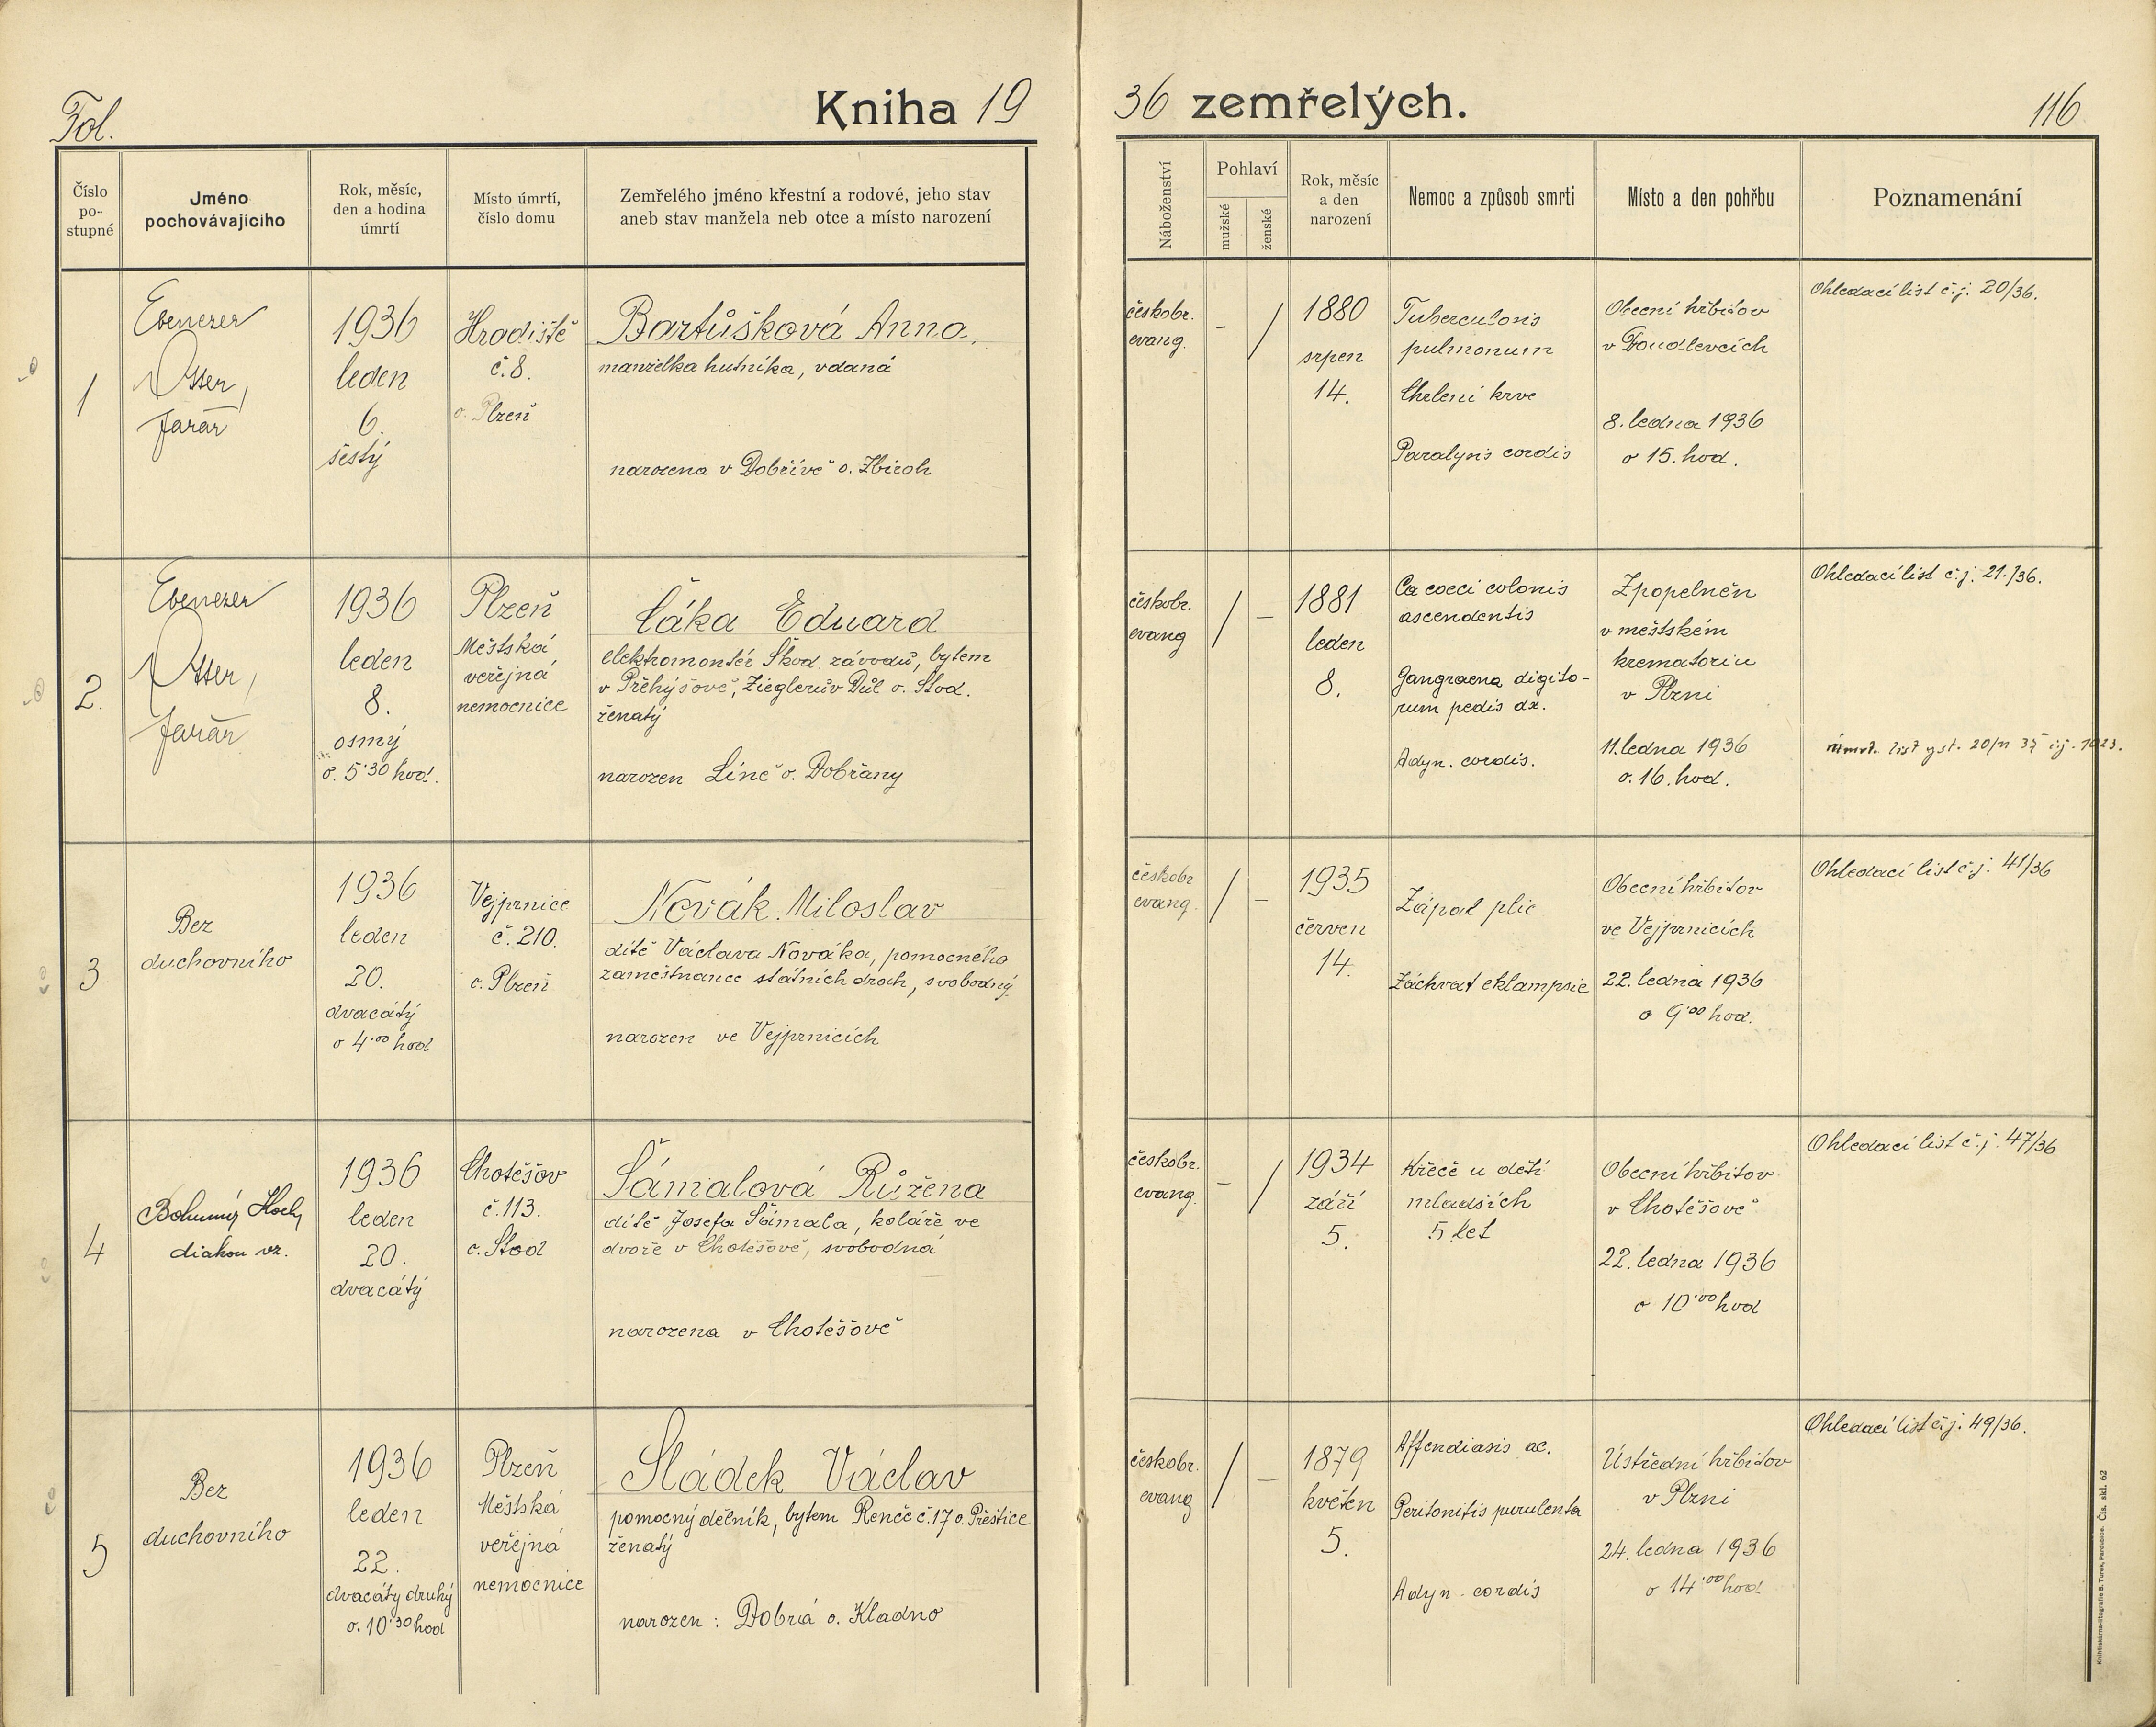 Fol.
Kniha 19
36 zemřelých.
116
Číslo
po-
stupné
Jméno
pochovávajícího
Rok, měsíc,
den a hodina
úmrtí
Místo úmrtí,
číslo domu
Zemřelého jméno křestní a rodové, jeho stav
aneb stav manžela neb otce a místo narození
Náboženství
Pohlaví
mužské
ženské
Rok, měsíc
a den
narození
Nemoc a způsob smrti
Místo a den pohřbu
Poznamenání
1
Ebenezer
Otter,
farář
1936
leden
6.
šestý
Hradiště
č. 8.
o. Plzeň
Bartůšková Anna,
manželka hutníka, vdaná
narozena v Dobřívě o. Zbiroh
českobr.
evang.
-
/
1880
srpen
14.
Tuberculosis
pulmonum
Chrlení krve
Paralysis cordis
Obecní hřbitov
v Doudlevcích
8. ledna 1936
o 15. hod.
Ohledací list č.j. 20/36.
2.
Ebenezer
Otter,
farář
1936
leden
8.
osmý
o. 5·30 hod.
Plzeň
Městská
veřejná
nemocnice
Cáka Eduard
elektromontér Škod. závodů, bytem
v Přehýšově, Zieglerův Důl o. Stod.
ženatý
narozen Líně o. Dobřany
českobr.
evang
/
-
1881
leden
8.
Ca coeci colonis
ascendentis
Gangraena digito-
rum pedis dx.
Adyn. cordis.
Zpopelněn
v městském
krematoriu
v Plzni
11. ledna 1936
o. 16. hod.
Ohledací list č.j. 21./36.
3
Bez
duchovního
1936
leden
20.
dvacátý
o 4·00 hod
Vejprnice
č. 210.
o. Plzeň
Novák Miloslav
dítě Václava Nováka, pomocného
zaměstnance státních drah, svobodný
narozen ve Vejprnicích
českobr
evang.
/
-
1935
červen
14.
Zápal plic
Záchvat eklampsie
Obecní hřbitov
ve Vejprnicích
22. ledna 1936
o 9·00 hod.
Ohledací list č.j. 41/36
4
Bohumír
diakon vr.
1936
leden
20.
dvacátý
Chotěšov
č. 113.
o. Stod
Šámalová Růžena
dítě Josefa Šámala, koláře ve
dvoře v Chotěšově, svobodná
narozena v Chotěšově
českobr.
evang.
-
/
1934
září
5.
Křeče u dětí
mladších
5 let
Obecní hřbitov
v Chotěšově
22. ledna 1936
o 10·00 hod
Ohledací list č.j. 47/36
5
Bez
duchovního
1936
leden
22.
dvacátý druhý
o. 10·30 hod
Plzeň
Městská
veřejná
nemocnice
Sládek Václav
pomocný dělník, bytem Renče č. 17 o. Přeštice
ženatý
narozen : Dobrá o. Kladno
českobr.
evang
/
-
1879
květen
5.
Affendiasis ac.
Peritonitis purulenta
Adyn. cordis
Ústřední hřbitov
v Plzni
24. ledna 1936
o 14·00 hod
Ohledací list č.j. 49/36.
Čís. skl. 62